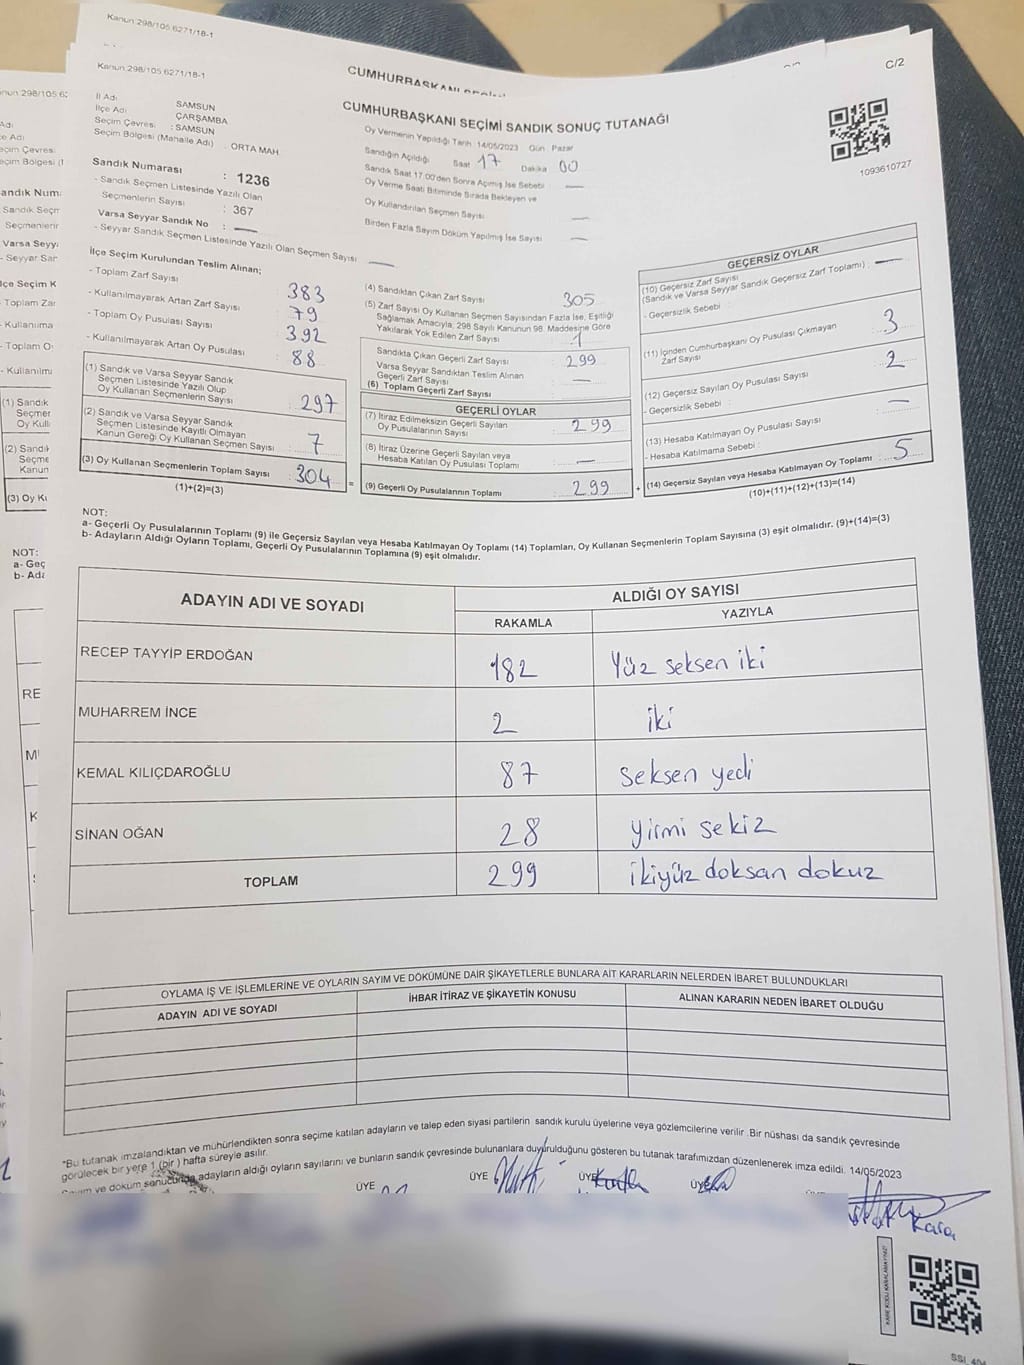 Kanun:298/105.6271/18-1
Kanun:298/105.6271/18-1
C/2
CUMHURBAŞKANI SEÇİMİ SANDIK SONUÇ TUTANAĞI
1093610727
İl Adı SAMSUN
İlçe Adı ÇARŞAMBA
Seçim Çevresi : SAMSUN
Seçim Bölgesi (Mahalle Adı) : ORTA MAH.
Sandık Numarası : 1236
- Sandık Seçmen Listesinde Yazılı Olan
Seçmenlerin Sayısı : 367
Varsa Seyyar Sandık No : —
- Seyyar Sandık Seçmen Listesinde Yazılı Olan Seçmen Sayısı —
Oy Vermenin Yapıldığı Tarih 14/05/2023 Gün : Pazar
Sandığın Açıldığı Saat 17 Dakika 00
Sandık Saat 17.00'den Sonra Açılmış İse Sebebi —
Oy Verme Saati Bitiminde Sırada Bekleyen ve
Oy Kullandırılan Seçmen Sayısı —
Birden Fazla Sayım Döküm Yapılmış İse Sayısı —
İlçe Seçim Kurulundan Teslim Alınan;
- Toplam Zarf Sayısı 383
- Kullanılmayarak Artan Zarf Sayısı 79
- Toplam Oy Pusulası Sayısı 392
- Kullanılmayarak Artan Oy Pusulası 88
(1) Sandık ve Varsa Seyyar Sandık
Seçmen Listesinde Yazılı Olup
Oy Kullanan Seçmenlerin Sayısı : 297
(2) Sandık ve Varsa Seyyar Sandık
Seçmen Listesinde Kayıtlı Olmayan
Kanun Gereği Oy Kullanan Seçmen Sayısı : 7
(3) Oy Kullanan Seçmenlerin Toplam Sayısı : 304
(1)+(2)=(3)
=
(4) Sandıktan Çıkan Zarf Sayısı 305
(5) Zarf Sayısı Oy Kullanan Seçmen Sayısından Fazla İse, Eşitliği
Sağlamak Amacıyla; 298 Sayılı Kanunun 98. Maddesine Göre
Yakılarak Yok Edilen Zarf Sayısı 1
Sandıkta Çıkan Geçerli Zarf Sayısı : 299
Varsa Seyyar Sandıktan Teslim Alınan
Geçerli Zarf Sayısı : —
(6) Toplam Geçerli Zarf Sayısı
GEÇERLİ OYLAR
(7) İtiraz Edilmeksizin Geçerli Sayılan
Oy Pusulalarının Sayısı : 299
(8) İtiraz Üzerine Geçerli Sayılan veya
Hesaba Katılan Oy Pusulası Toplamı : —
(9) Geçerli Oy Pusulalarının Toplamı : 299
+
GEÇERSİZ OYLAR
(10) Geçersiz Zarf Sayısı
(Sandık ve Varsa Seyyar Sandık Geçersiz Zarf Toplamı) : —
- Geçersizlik Sebebi :
(11) İçinden Cumhurbaşkanı Oy Pusulası Çıkmayan
Zarf Sayısı : 3
(12) Geçersiz Sayılan Oy Pusulası Sayısı : 2
- Geçersizlik Sebebi :
(13) Hesaba Katılmayan Oy Pusulası Sayısı : —
- Hesaba Katılmama Sebebi :
(14) Geçersiz Sayılan veya Hesaba Katılmayan Oy Toplamı : 5
(10)+(11)+(12)+(13)=(14)
NOT:
a- Geçerli Oy Pusulalarının Toplamı (9) ile Geçersiz Sayılan veya Hesaba Katılmayan Oy Toplamı (14) Toplamları, Oy Kullanan Seçmenlerin Toplam Sayısına (3) eşit olmalıdır. (9)+(14)=(3)
b- Adayların Aldığı Oyların Toplamı, Geçerli Oy Pusulalarının Toplamına (9) eşit olmalıdır.
ADAYIN ADI VE SOYADI
ALDIĞI OY SAYISI
RAKAMLA YAZIYLA
RECEP TAYYİP ERDOĞAN 182 Yüz seksen iki
MUHARREM İNCE 2 iki
KEMAL KILIÇDAROĞLU 87 seksen yedi
SİNAN OĞAN 28 yirmi sekiz
TOPLAM 299 ikiyüz doksan dokuz
OYLAMA İŞ VE İŞLEMLERİNE VE OYLARIN SAYIM VE DÖKÜMÜNE DAİR ŞİKAYETLERLE BUNLARA AİT KARARLARIN NELERDEN İBARET BULUNDUKLARI
ADAYIN ADI VE SOYADI İHBAR İTİRAZ VE ŞİKAYETİN KONUSU ALINAN KARARIN NEDEN İBARET OLDUĞU
"Bu tutanak imzalandıktan ve mühürlendikten sonra seçime katılan adayların ve talep eden siyasi partilerin sandık kurulu üyelerine veya gözlemcilerine verilir. Bir nüshası da sandık çevresinde
görülecek bir yere 1 (bir) hafta süreyle asılır.
Sayım ve döküm sonucunda adayların aldığı oyların sayılarını ve bunların sandık çevresinde bulunanlara duyurulduğunu gösteren bu tutanak tarafımızdan düzenlenerek imza edildi. 14/05/2023
ÜYE ÜYE ÜYE ÜYE